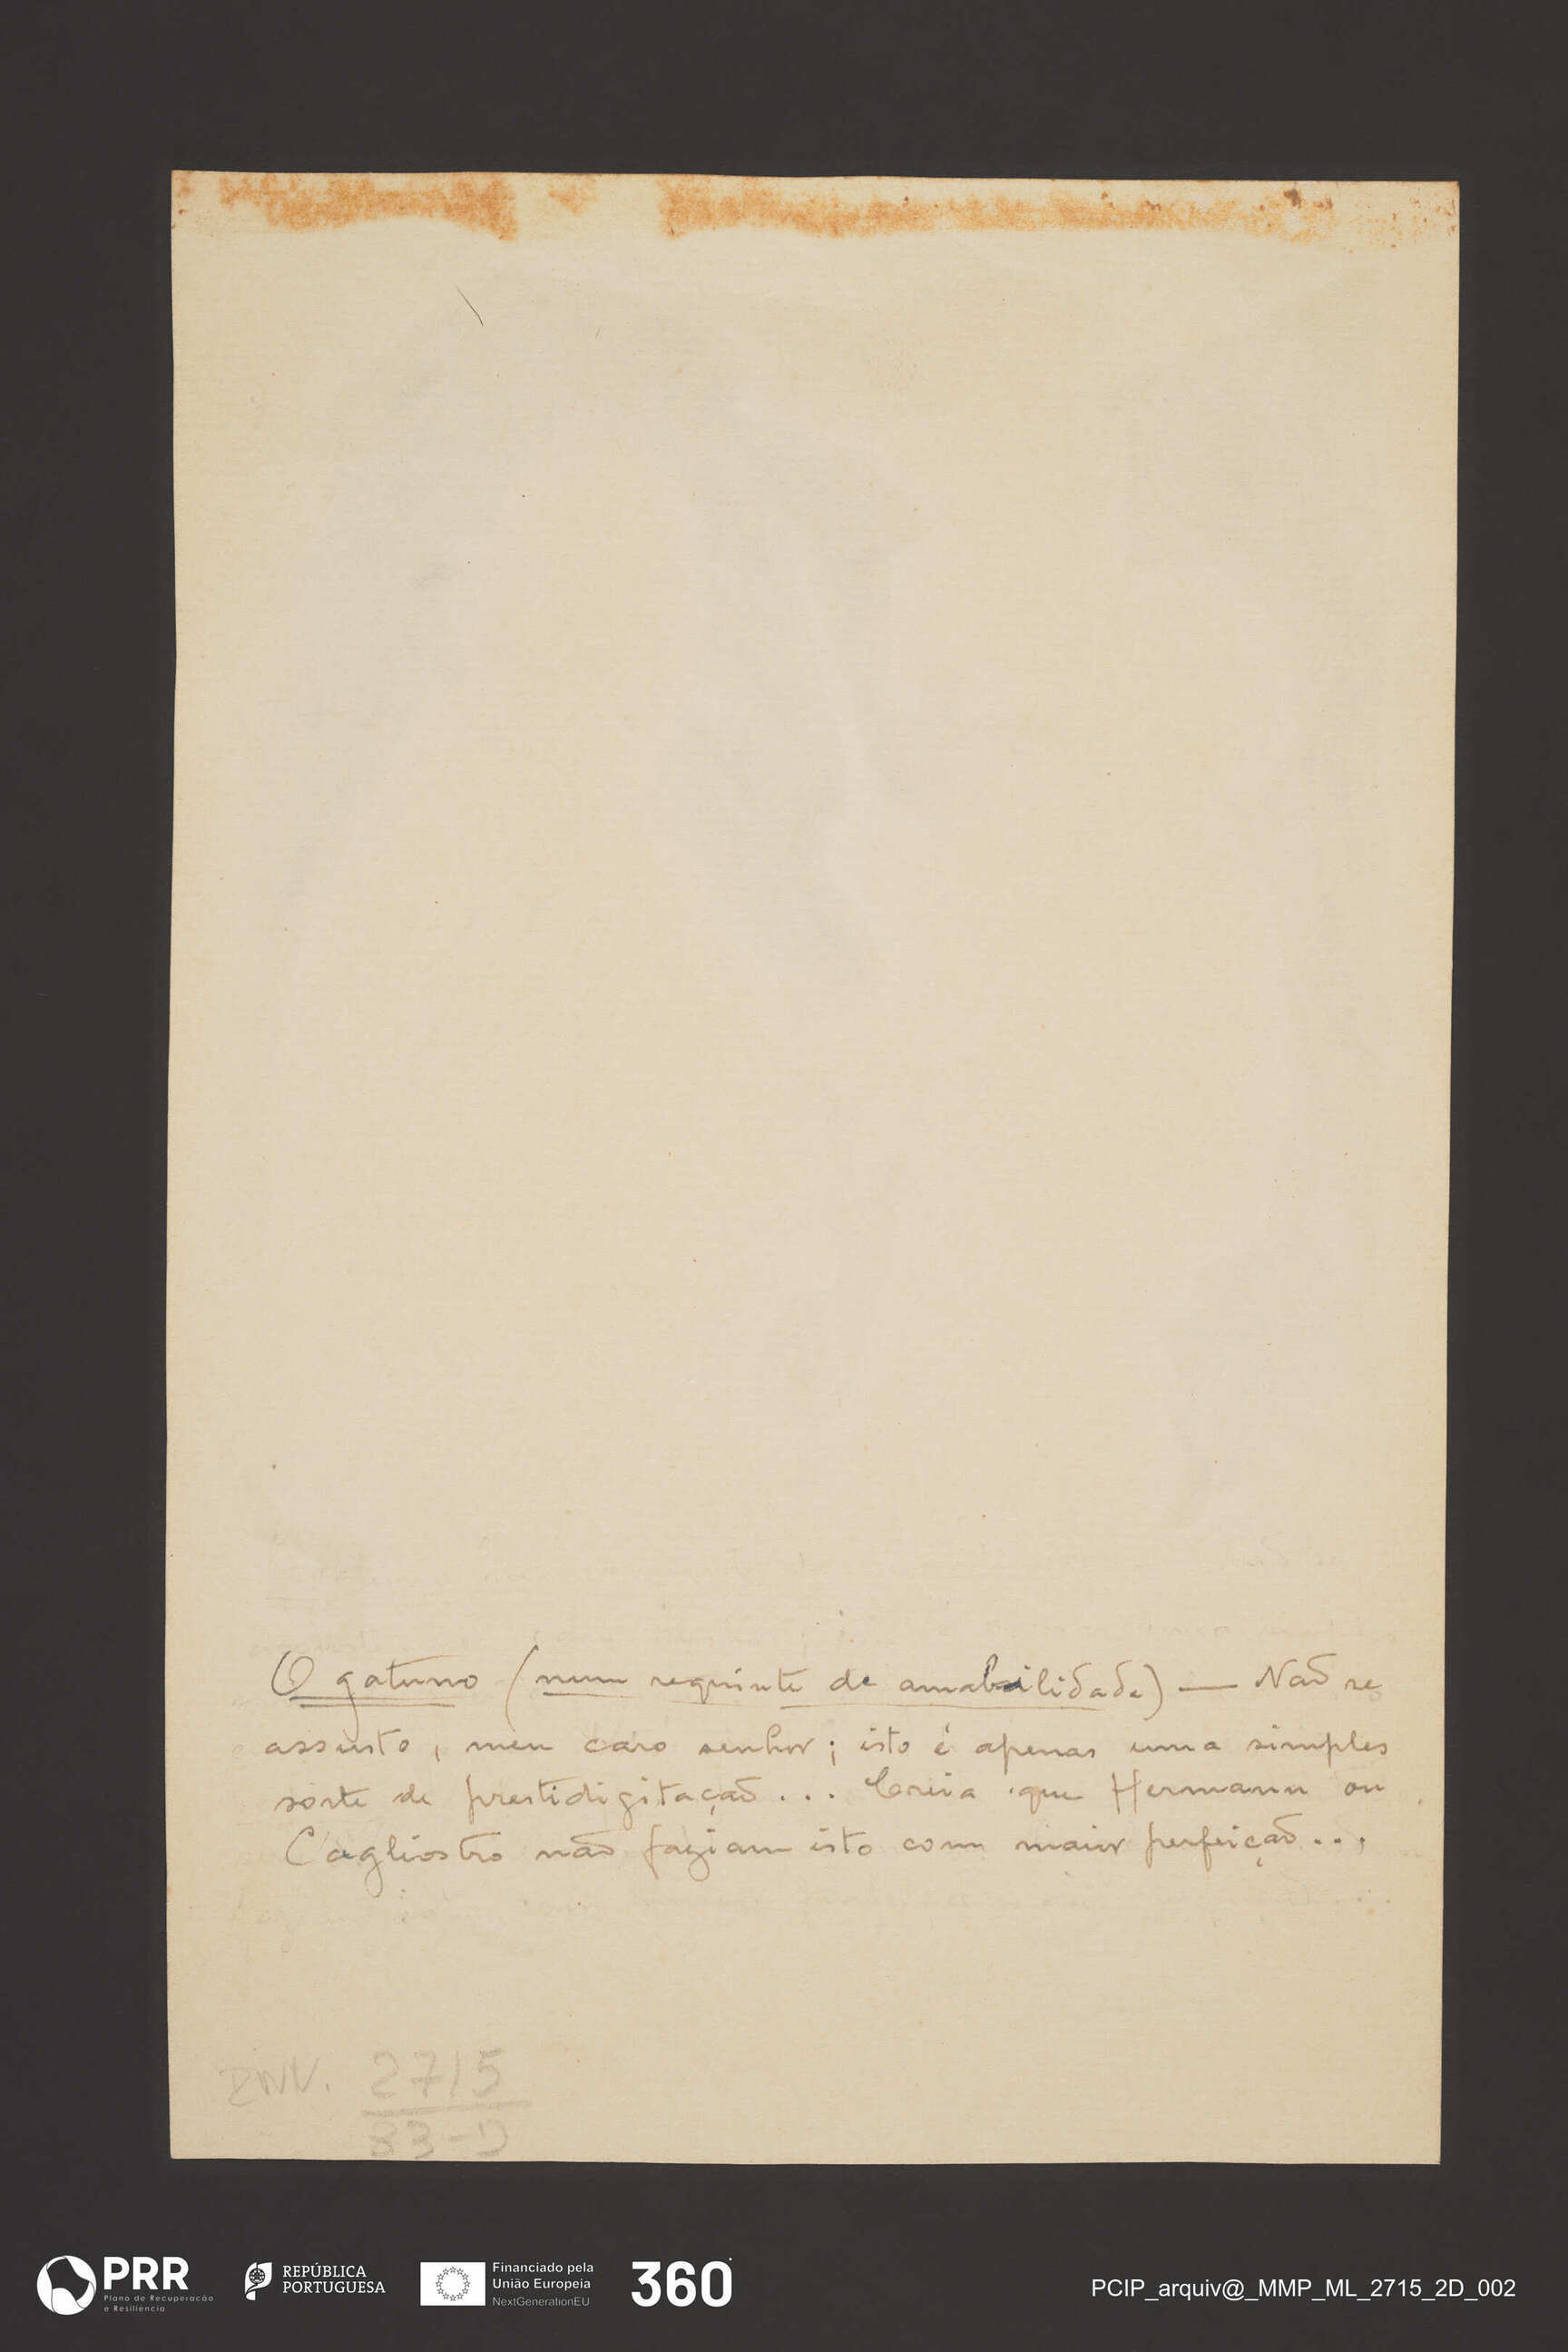 O gatuno (num requinte de amabilidade) — Não se
assusto, meu caro senhor; isto é apenas uma simples
sorte de prestidigitação... Creia que Hermann ou
Cagliostro não faziam isto com maior perfeição...
INV. 2715
33-D
PRR
Plano de Recuperação
e Resiliência
REPÚBLICA
PORTUGUESA
Financiado pela
União Europeia
NextGenerationEU
360
PCIP_arquiv@_MMP_ML_2715_2D_002